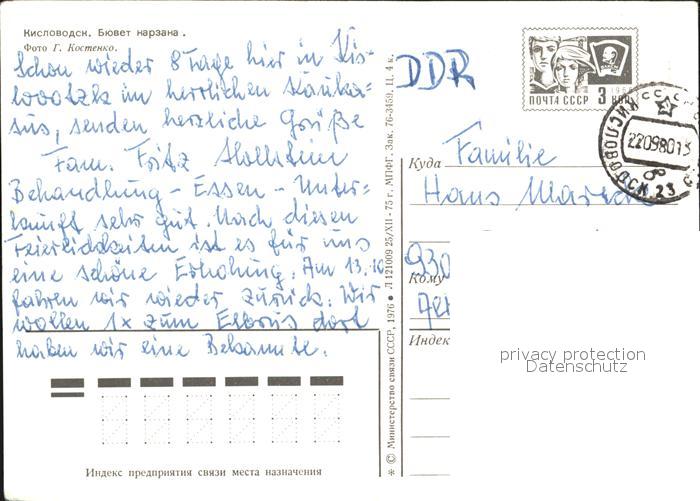 Кисловодск. Бювет нарзана.
Фото Г. Костенко.
Schon wieder 8 Tage hier in Kis-
lowotzk im herrlichen Kauka=
sus, senden herzliche Grüße
Fam. Fritz Hollstein
Behandlung - Essen - Unter-
kunft sehr gut. Nach diesen
Feierlichkeiten ist es für uns
eine schöne Erholung. Am 13.10
fahren wir wieder zurück. Wir
wollen 1x zum Elbrus dort
haben wir eine Bekannte.
Индекс предприятия связи места назначения
© Министерство связи СССР, 1976 ● Л 121009 25/XII - 75 г. МПФГ. Зак. 76-3459. Ц. 4 к.
DDR
ПОЧТА СССР 3 КОП
1966
КИСЛОВОДСК 23
СССР
22098013
Куда Familie
Hans
930
Кому
Индекс
privacy protection
Datenschutz